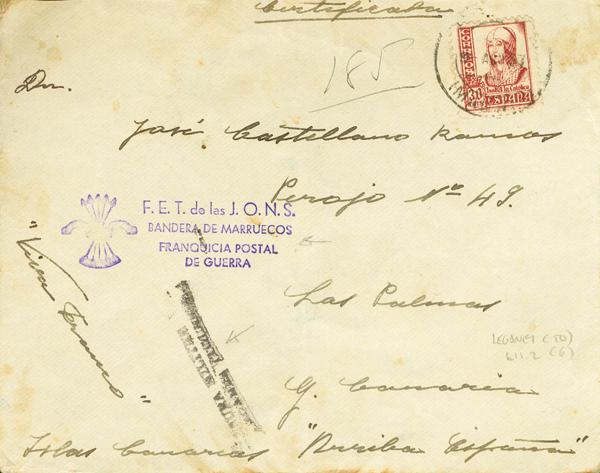 Certificada
185
CORREOS
30
Isabel la Católica
ESPAÑA
Dn.
José Castellano Ramos
Perojo Nº 49.
F.E.T. de las J.O.N.S.
BANDERA DE MARRUECOS
FRANQUICIA POSTAL
DE GUERRA
"Viva Franco"
Las Palmas
LEGANES (TO)
(6)
G. Canaria
Islas Canarias "Arriba España"